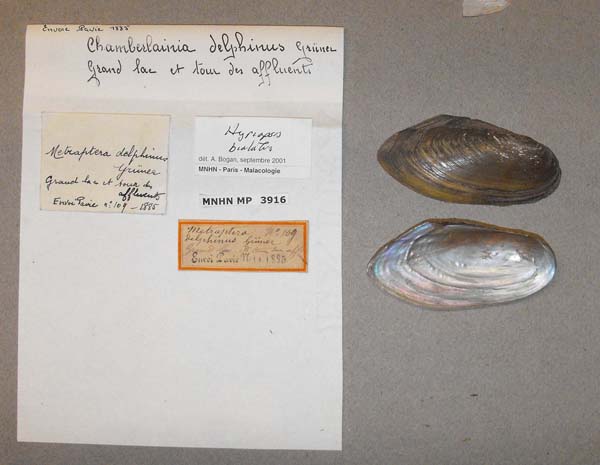 Envoi Pavie 1885
Chamberlainia delphinus Grüner
Grand lac et tour des affluents
Metraptera delphinus
Grüner
Grand lac et tour des
affluents
Envoi Pavie n° 109 - 1885
Hyriopsis
bialatus
dét. A. Bogan, septembre 2001
MNHN - Paris - Malacologie
MNHN MP 3916
Metraptera N° 109
delphinus Grüner
Grand lac
Envoi Pavie 1885